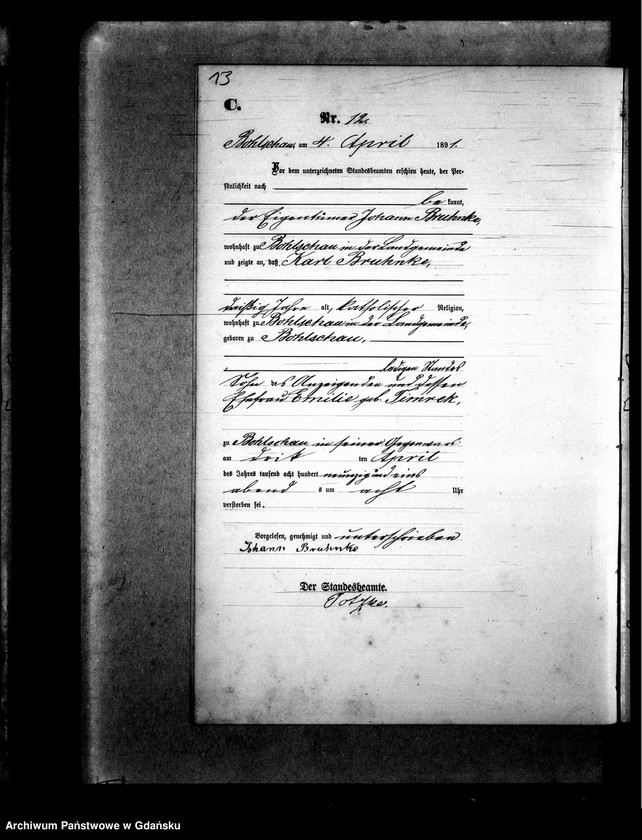 13
C.
Nr. 12.
Bohlschau, am 4. April 1891.
Vor dem unterzeichneten Standesbeamten erschien heute, der Per-
sönlichkeit nach
be kannt,
der Eigentümer Johann Bruhnke,
wohnhaft zu Bohlschau in der Landgemeinde
und zeigte an, daß Karl Bruhnke,
dreißig Jahre alt, katholischer Religion,
wohnhaft zu Bohlschau in der Landgemeinde,
geboren zu Bohlschau,
ledigen Standes
Sohn des Anzeigenden und dessen
Ehefrau Emilie geb.
zu Bohlschau in seiner Gegenwart
am ten April
des Jahres tausend acht hundert neunzig und eins
abend s um acht Uhr
verstorben sei.
Vorgelesen, genehmigt und unterschrieben
Johann Bruhnke
Der Standesbeamte.
Archiwum Państwowe w Gdańsku